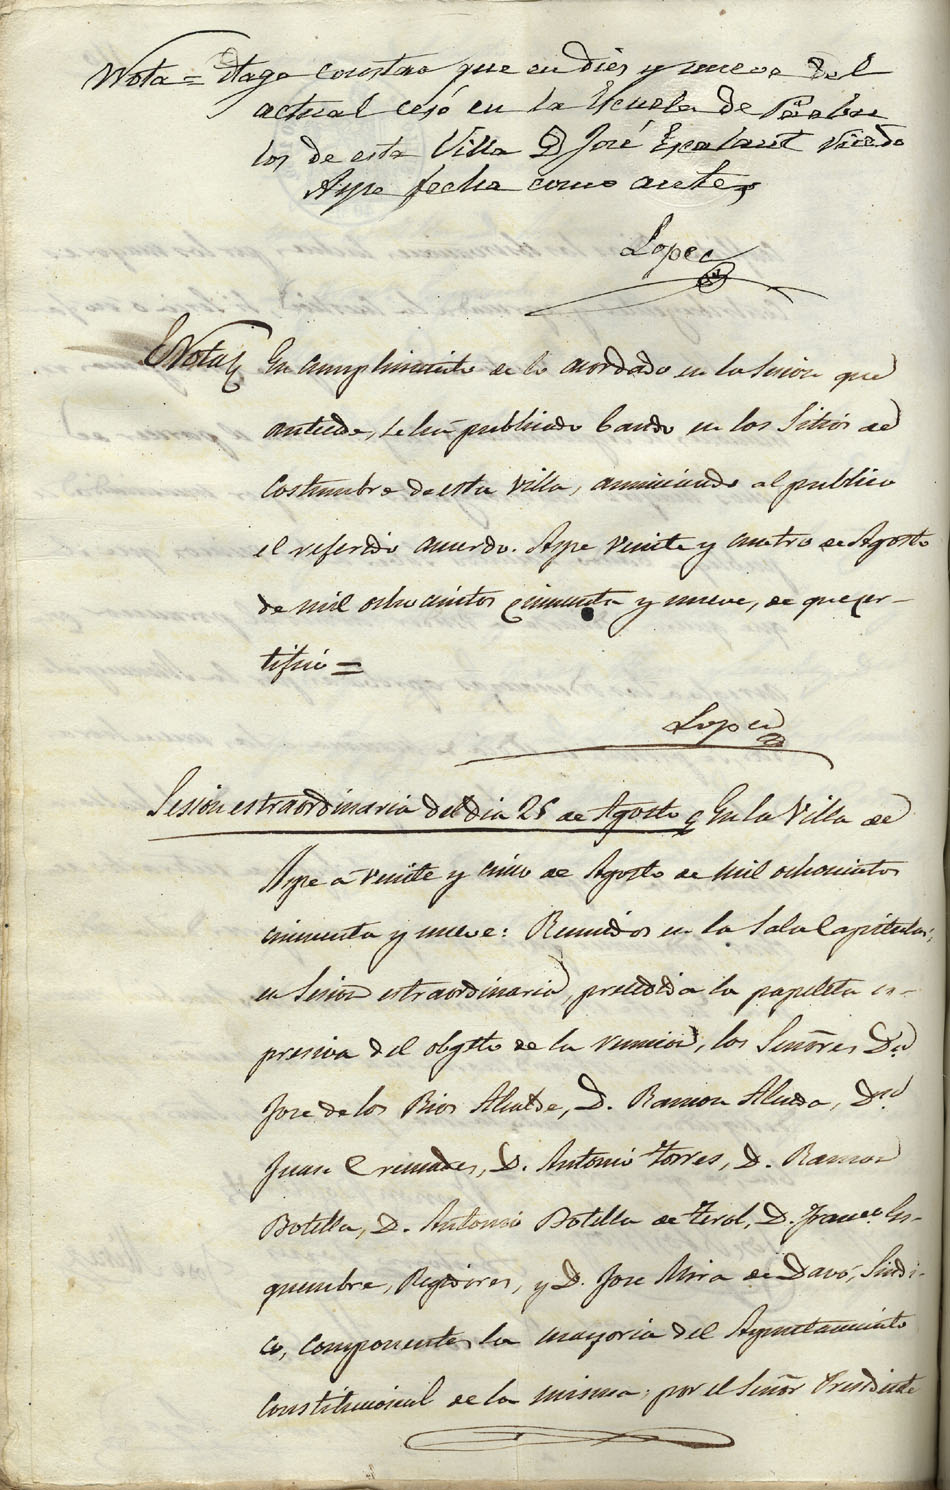 Nota = Hago constar que en diez y nueve del
actual cesó en la Escuela de Parbu
los de esta Villa D José Escalant Vicedo
Aspe fecha como antes
Lopez
Nota En cumplimiento de lo acordado en la Sesion que
antecede, se ha publicado bando en los Sitios de
costumbre de esta Villa, anunciando al publico
el referido acuerdo. Aspe veinte y cuatro de Agosto
de mil ochocientos cincuenta y nueve, de que cer-
tifico =
Lopez
Sesion estraordinaria del dia 25 de Agosto En la Villa de
Aspe a veinte y cinco de Agosto de mil ochocientos
cincuenta y nueve: Reunidos en la Sala Capitular,
en Sesion estraordinaria, precedida la papeleta es-
presiva del objeto de la reunion, los Señores Dn
Jose de los Rios Alcalde, D. Ramon Alcada, Dn
Juan Cremades, D. Antonio Torres, D. Ramon
Botella, D. Antonio Botella de Terol, D. Franco Es-
quembre, Regidores, y D. Jose Mira de Davó, Sindi-
co, componentes la mayoria del Ayuntamiento
Constitucional de la misma; por el Señor Presidente